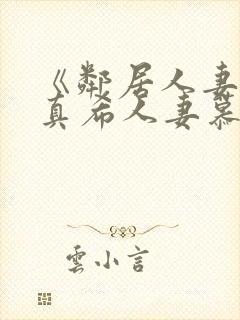 《鄰居人妻
真希人妻慕
雲小言